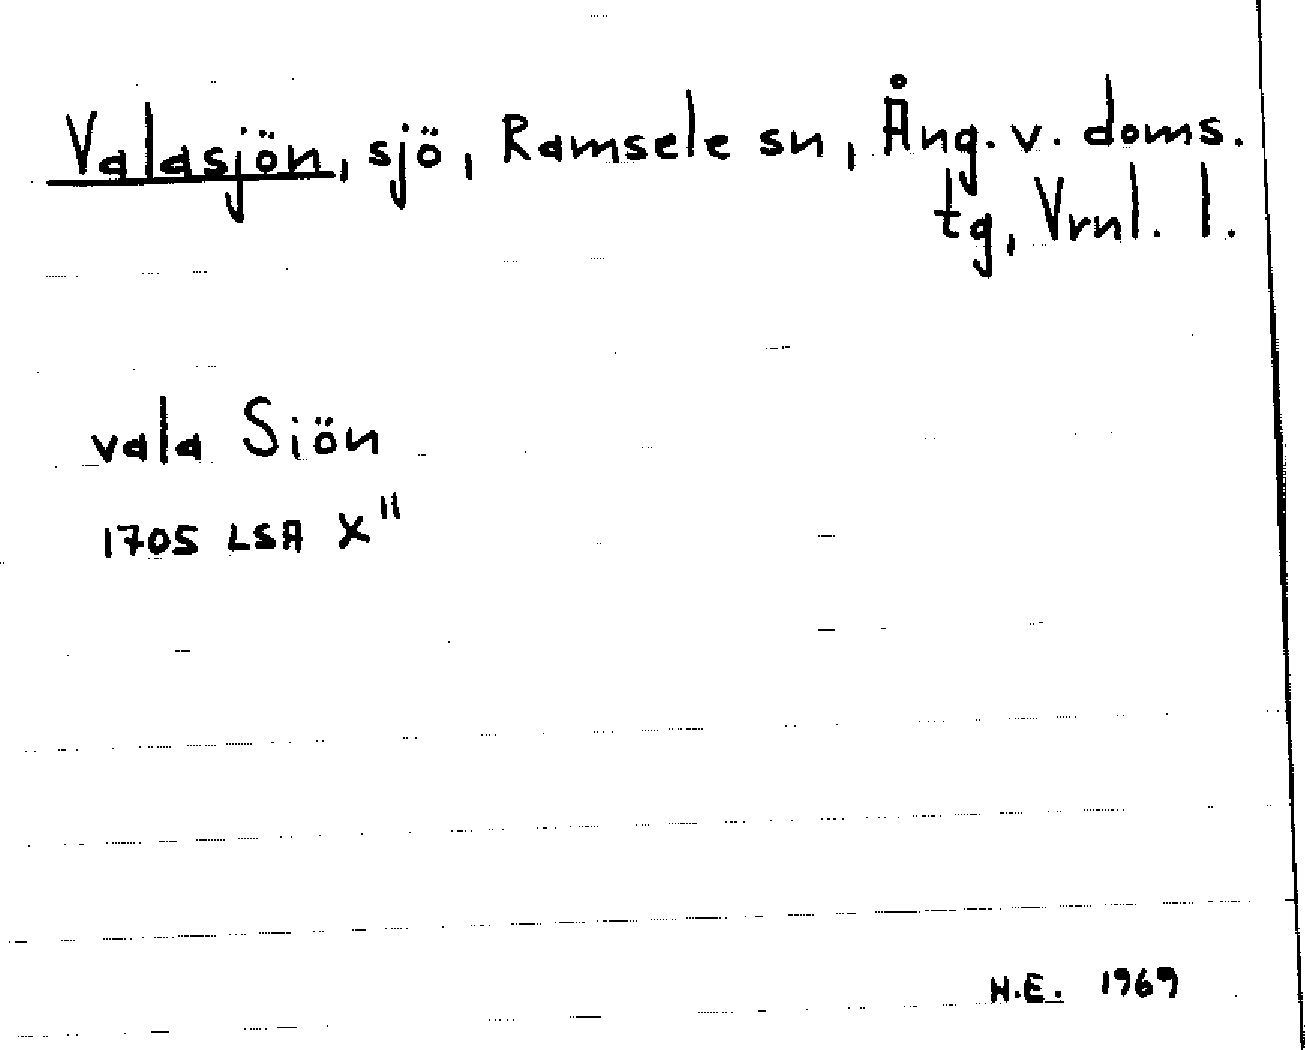 Valasjön, sjö, Ramsele sn, Ång. v. doms.
tg, Vrnl. l.
vala Siön
1705 LSA X"
H.E. 1969